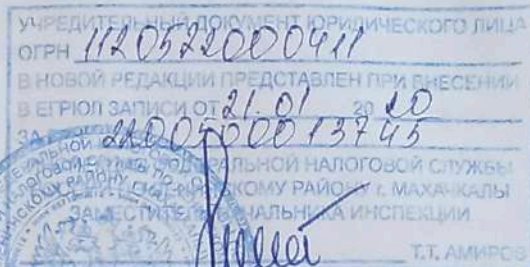 УЧРЕДИТЕЛЬНЫЙ ДОКУМЕНТ ЮРИДИЧЕСКОГО ЛИЦА
ОГРН 1120522000411
В НОВОЙ РЕДАКЦИИ ПРЕДСТАВЛЕН ПРИ ВНЕСЕНИИ
В ЕГРЮЛ ЗАПИСИ ОТ 21.01 2020
ЗА 2200500013745
ФЕДЕРАЛЬНОЙ НАЛОГОВОЙ СЛУЖБЫ
РАЙОНУ г. МАХАЧКАЛЫ
ЗАМЕСТИТЕЛЬ НАЧАЛЬНИКА ИНСПЕКЦИИ
Т.Т. АМИРОВ